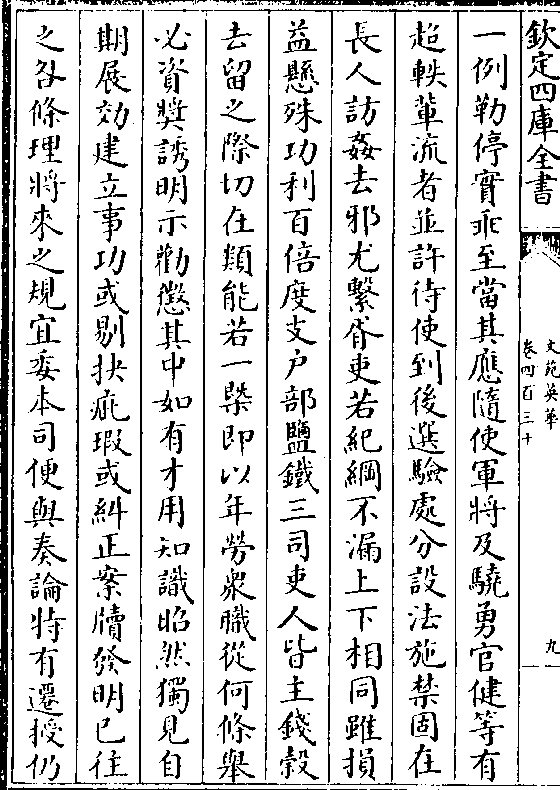 欽定四庫全書
文苑英華
卷四百三十
九
一例勒停實乖至當其應隨使軍將及驍勇官健等有
超軼輩流者並許待使到後選驗處分設法施禁固在
長人訪姦去邪尤繫胥吏若紀綱不漏上下相同雖損
益懸殊功利百倍度支户部鹽鐵三司吏人皆主錢榖
去留之際切在類能若一槩即以年勞衆職從何條舉
必資奬誘明示勸懲其中如有才用知識昭然獨見自
期展効建立事功或剔抉疵瑕或糾正案牘發明已往
之咎條理將來之規宜委本司便與奏論特有遷授仍